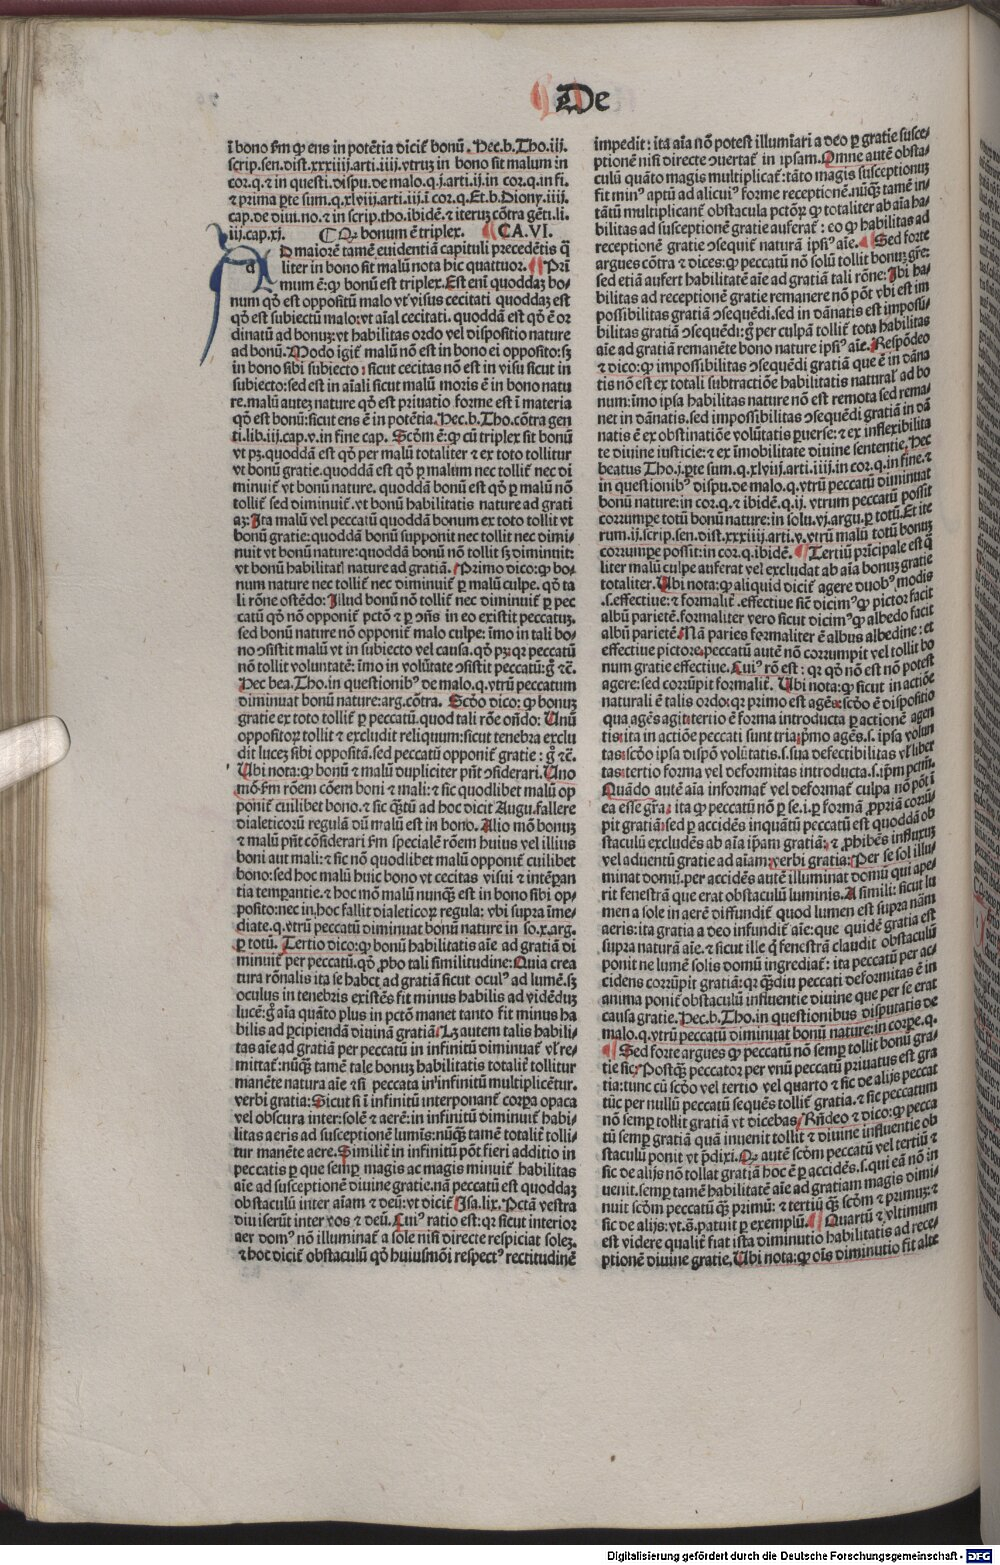 De
ī bono ẜm ꝙ ens in potētia dicit᷑ bonū. Hec.b.Tho.iij.
scrip.sen.dist.xxxiiij.arti.iiij.vtruꝫ in bono sit malum in
cor.q.⁊ in questi.dispu.de malo.q.j.arti.ij.in cor.q.in fi.
⁊ prima ꝑte sum.q.xlviij.arti.iij.ī cor.q.Et.b.Diony.iiij.
cap.de diui.no.⁊ in scrip.tho.ibidē.⁊ iteruꝫ cōtra gēti.li.
iij.cap.xj. ¶ Qꝛ bonum ē triplex. ¶ CA.VI.
aD maiorē tamē euidentiā capituli precedētis q̄
liter in bono sit malū nota hic quattuor. ¶ Pri
mum ē:ꝙ bonū est triplex.Est enī quoddaꝫ bo-
num qd̓ est oppositū malo vt visus cecitati quoddaꝫ est
qd̓ est subiectū malo:vt aīal cecitati.quoddā est qd̓ ē or
dinatū ad bonuꝫ:vt habilitas ordo vel dispositio nature
ad bonū.Modo igit᷑ malū nō est in bono ei opposito:sꝫ
in bono sibi subiecto:sicut cecitas nō est in visu sicut in
subiecto:sed est in aīali sicut malū moris ē in bono natu
re.malū autez nature qd̓ est priuatio forme est ī materia
qd̓ est bonū:sicut ens ē in potētia.Hec.b.Tho.cōtra gen
ti.lib.iij.cap.v.in fine cap. Scd̓m ē:ꝙ cū triplex sit bonū
vt pꝫ.quoddā est qd̓ per malū totaliter ⁊ ex toto tollitur
vt bonū gratie.quoddā est qd̓ ꝑ malum nec tollit᷑ nec di
minuit᷑ vt bonū nature. quoddā bonū est qd̓ ꝑ malū nō
tollit᷑ sed diminuit᷑.vt bonū habilitatis nature ad grati
aꝫ:Ita malū vel peccatū quoddā bonum ex toto tollit vt
bonū gratie:quoddā bonū supponit nec tollit nec dimi-
nuit vt bonū nature:quoddā bonū nō tollit sꝫ diminuit:
vt bonū habilitat᷑ nature ad gratiā.Primo dico:ꝙ bo-
num nature nec tollit᷑ nec diminuit᷑ ꝑ malū culpe.qd̓ ta
li rōne ostēdo:Illud bonū nō tollit᷑ nec diminuit᷑ ꝑ pec
catū qd̓ nō opponit᷑ pctō ⁊ ꝑ ꝯn̄s in eo existit peccatuꝫ.
sed bonū nature nō opponit᷑ malo culpe:īmo in tali bo-
no ꝯsistit malū vt in subiecto vel causa.qd̓ pꝫ:qꝛ peccatū
nō tollit voluntatē:īmo in volūtate ꝯsistit peccatū:gͦ ⁊c̄.
Hec bea.Tho.in questionibꝰ de malo.q.vtrū peccatum
diminuat bonū nature:arg.cōtra. Scd̓o dico:ꝙ bonuꝫ
gratie ex toto tollit᷑ ꝑ peccatū.quod tali rōe on̄do: Unū
oppositoꝝ tollit ⁊ excludit reliquum:sicut tenebra exclu
dit luceꝫ sibi oppositā.sed peccatū opponit᷑ gratie:gͦ ⁊c̄.
Ubi nota:ꝙ bonū ⁊ malū dupliciter pn̄t ꝯsiderari.Uno
mō ẜm rōem cōem boni ⁊ mali:⁊ sic quodlibet malū op
ponit᷑ cuilibet bono.⁊ sic q̄stū ad hoc dicit Augu.fallere
dialeticorū regulā dū malū est in bono. Alio mō bonuꝫ
⁊ malū pn̄t cōsiderari ẜm specialē rōem huius vel illius
boni aut mali:⁊ sic nō quodlibet malū opponit᷑ cuilibet
bono:sed hoc malū huic bono vt cecitas visui ⁊ intēperan
tia temperantie.⁊ hoc mō malū nunqꝫ est in bono sibi op-
posito:nec in.hoc fallit dialeticoꝝ regula: vbi supra īme-
diate.q.vtrū peccatū diminuat bonū nature in so.x.arg.
ꝑ totū. Tertio dico:ꝙ bonū habilitatis aīe ad gratiā di
minuit᷑ per peccatū.qd̓ ꝓbo tali similitudine:Quia crea
tura rōnalis ita se habet ad gratiā sicut oculꝰ ad lumē.sꝫ
oculus in tenebris existēs fit minus habilis ad vidēduꝫ
lucē:gͦ aīa quāto plus in pctō manet tanto fit minus ha
bilis ad ꝑcipiendā diuinā gratiā.Lꝫ autem talis habili-
tas aīe ad gratiā per peccatū in infinitū diminuat᷑ vl̓ re-
mittat᷑:nūꝙ tamē tale bonuꝫ habilitatis totalit᷑ tollitur
manēte natura aīe ⁊ si peccata in infinitū multiplicētur.
verbi gratia:Sicut si ī infinitū interponant᷑ corꝑa opaca
vel obscura inter:solē ⁊ aerē:in infinitū diminuit᷑ habi-
litas aeris ad susceptionē lumīs:nūꝙ tamē totalit᷑ tolli-
tur manēte aere.Similit᷑ in infinitū pōt fieri additio in
peccatis ꝑ que semꝑ magis ac magis minuit᷑ habilitas
aīe ad susceptionē diuine gratie.nā peccatū est quoddaꝫ
obstaculū inter aīam ⁊ deū:vt dicit᷑ Isa.lix.Pctā vestra
diuiserūt inter vos ⁊ deū.Cuiꝰ ratio est:qꝛ sicut interior
aer domꝰ nō illuminat᷑ a sole nisi directe respiciat solez.
⁊ hoc dicit᷑ obstaculū qd̓ huiusmōi respectꝰ rectitudinē
impedit:ita aīa nō potest illumīari a deo ꝑ gratie susce-
ptionē nisi directe ꝯuertat᷑ in ipsam.Omne autē obsta-
culū quāto magis multiplicat᷑:tāto magis susceptiuuꝫ
fit minꝰ aptū ad alicuiꝰ forme receptionē.nūꝙ tamē in-
tātū multiplicant᷑ obstacula pctōꝝ ꝙ totaliter ab aīa ha-
bilitas ad susceptionē gratie auferat᷑:eo ꝙ habilitas ad
receptionē gratie ꝯsequit᷑ naturā ipsiꝰ aīe. ¶ Sed forte
argues cōtra ⁊ dices:ꝙ peccatū nō solū tollit bonuꝫ gre:
sed etiā aufert habilitatē aīe ad gratiā tali rōne:Ibi ha-
bilitas ad receptionē gratie remanere nō pōt vbi est im
possibilitas gratiā ꝯsequēdi.sed in dānatis est impossi-
bilitas gratiā ꝯsequēdi:gͦ per culpā tollit᷑ tota habilitas
aīe ad gratiā remanēte bono nature ipsiꝰ aīe.Respōdeo
⁊ dico:ꝙ impossibilitas ꝯsequēdi gratiā que ē in dāna
tis nō est ex totali subtractiōe habilitatis natural᷑ ad bo
num:īmo ipsa habilitas nature nō est remota sed rema-
net in dānatis.sed impossibilitas ꝯsequēdi gratiā in dā
natis ē ex obstinatiōe volūtatis ꝑuerse:⁊ ex inflexibilita
te diuine iusticie:⁊ ex īmobilitate diuine sententie.Hec
beatus Tho.j.ꝑte sum.q.xlviij.arti.iiij.in cor.q.in fine.⁊
in questionibꝰ dispu.de malo.q.vtrū peccatū diminuat
bonū nature:in cor.q.⁊ ibidē.q.ij.vtrum peccatū possit
corrumꝑe totū bonū nature:in solu.vj.argu.ꝑ totū.Et ite
rum.ij.scrip.sen.dist.xxxiiij.arti.v.vtrū malū totū bonuꝫ
corrumꝑe possit:in cor.q.ibidē. ¶ Tertiū prīcipale est q̄
liter malū culpe auferat vel excludat ab aīa bonuꝫ gratie
totaliter. Ubi nota:ꝙ aliquid dicit᷑ agere duobꝰ modis
.s.effectiue:⁊ formalit᷑.effectiue sic̄ dicimꝰ ꝙ pictor facit
albū parietē.formaliter vero sicut dicimꝰ ꝙ albedo facit
albū parietē.Nā paries formaliter ē albus albedine:et
effectiue pictore.peccatū autē nō corrumpit vel tollit bo
num gratie effectiue.Cuiꝰ rō est:qꝛ qd̓ nō est nō potest
agere:sed corrūpit formalit᷑. Ubi nota:ꝙ sicut in actiōe
naturali ē talis ordo:qꝛ primo est agēs:scd̓o ē dispositio
qua agēs agit:tertio ē forma introducta ꝑ actionē agen
tis:ita in actiōe peccati sunt tria:pͥmo agēs.s. ipsa volun
tas:scd̓o ipsa dispō volūtatis.s.sua defectibilitas vl̓ liber
tas:tertio forma vel deformitas introducta.s.ipm̄ pctm̄.
Quādo autē aīa informat᷑ vel deformat᷑ culpa nō pōt ī
ea esse gr̄a:ita ꝙ peccatū nō ꝑ se.i.ꝑ formā ꝓpriā corrū-
pit gratiā:sed ꝑ accidēs inquātū peccatū est quoddā ob
staculū excludēs ab aīa ip̄am gratiā:⁊ ꝓhibēs influxuꝫ
vel aduentū gratie ad aīam:verbi gratia:Per se sol illu-
minat domū.per accidēs autē illuminat domū qui ape-
rit fenestrā que erat obstaculū luminis. A simili:sicut lu
men a sole in aerē diffundit᷑ quod lumen est supra nām
aeris:ita gratia a deo infundit᷑ aīe:que quidē gratia est
supra naturā aīe.⁊ sicut ille q̄ fenestrā claudit obstaculū
ponit ne lumē solis domū ingrediat᷑:ita peccatū per ac-
cidens corrūpit gratiā:qꝛ q̄diu peccati deformitas ē in
anima ponit᷑ obstaculū influentie diuine que per se erat
causa gratie.Hec.b.Tho.in questionibus disputatis de
malo.q.vtrū peccatū diminuat bonū nature:in corꝑe.q.
¶ Sed forte argues ꝙ peccatū nō semꝑ tollit bonū gra-
tie sic:Postꝙ peccator per vnū peccatū priuatus est gra
tia:tunc cū scd̓o vel tertio vel quarto ⁊ sic de alijs peccat
tūc per nullū peccatū sequēs tollit᷑ gratia.⁊ sic peccatum
nō semꝑ tollit gratiā vt dicebas.Rn̄deo ⁊ dico:ꝙ pecca
tū semꝑ gratiā quā inuenit tollit ⁊ diuine influentie ob
staculū ponit vt p̄dixi.Qꝛ autē scd̓m peccatū vel tertiū ⁊
sic de alijs nō tollat gratiā hoc ē ꝑ accidēs.s.qui eā nō in
uenit.semꝑ tamē habilitatē aīe ad gratiam magis dimi-
nuit scd̓m peccatū qꝫ primū:⁊ tertiū qꝫ scd̓m ⁊ primuꝫ:⁊
sic de alijs:vt.s.patuit ꝑ exemplū. ¶ Quartū ⁊ vltimum
est videre qualit᷑ fiat ista diminutio habilitatis ad rece-
ptionē diuine gratie.Ubi nota:ꝙ oīs diminutio fit alte
Digitalisierung gefördert durch die Deutsche Forschungsgemeinschaft - DFG